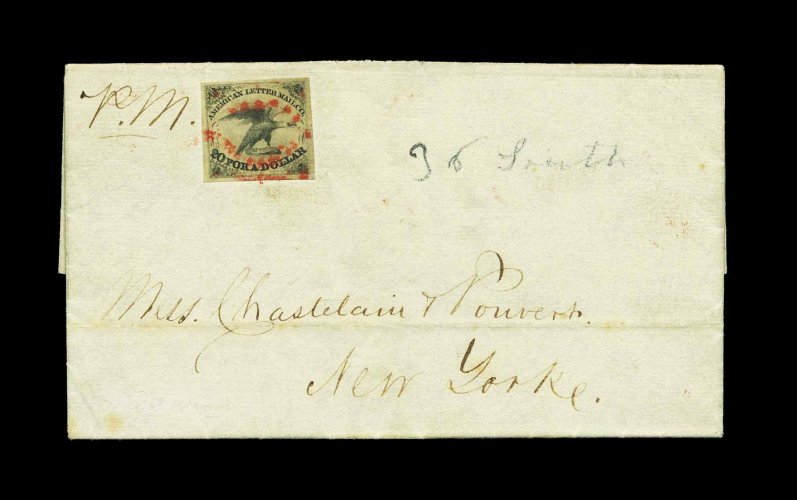 P.M.
AMERICAN LETTER MAIL CO.
20 FOR A DOLLAR
36 South
Mess. Chastelain & Ponvert.
New Yorke.